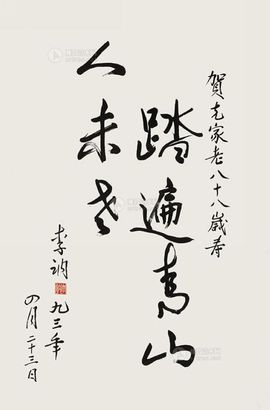 賀克家老八十八歲寿
踏遍青山
人未老
李訥
九三年
四月二十三日